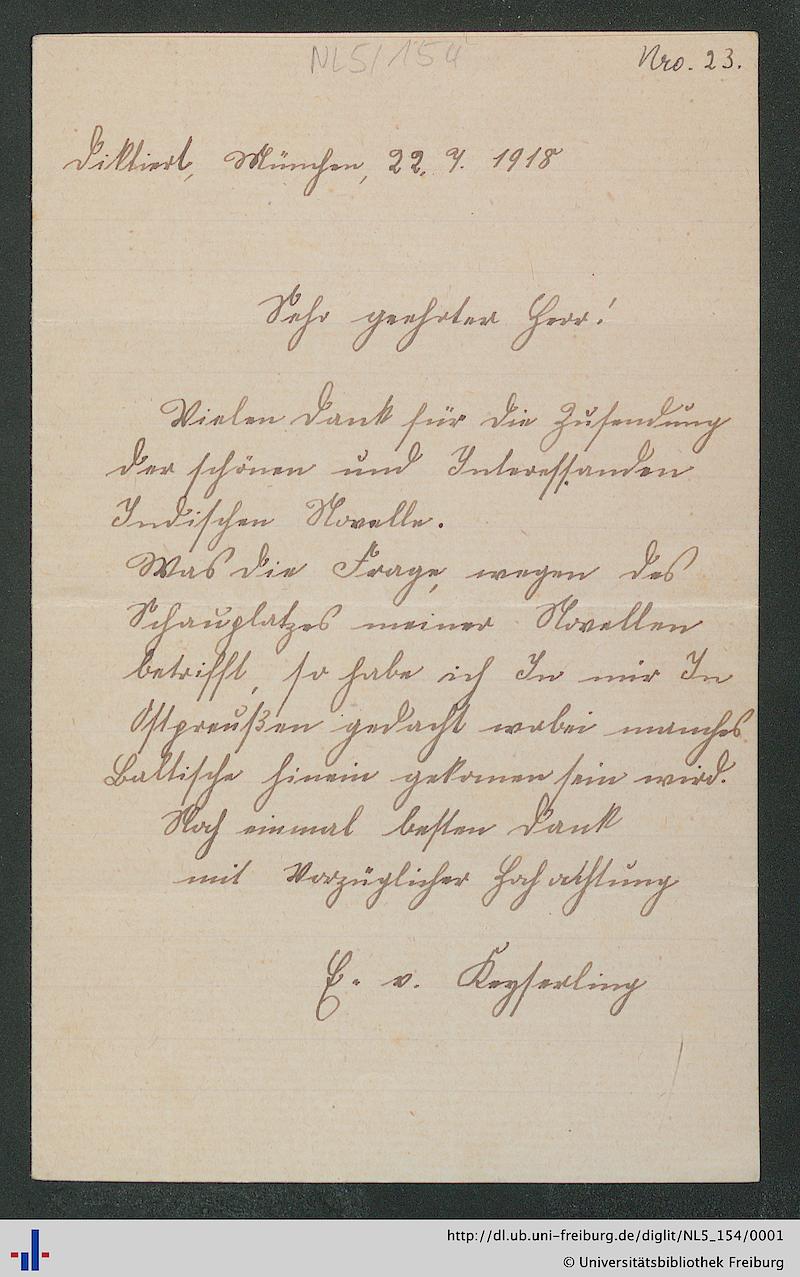 NL5/154
Nro. 23.
Diktiert, München, 22. 9. 1918
Sehr geehrter Herr!
Vielen Dank für die Zusendung
der schönen und Interessanden
Indischen Novelle.
Was die Frage, wegen des
Schauplatzes meiner Novellen
betrifft, so habe ich In mir In
Ostpreußen gedacht wobei manches
Baltische hinein gekomen sein wird.
Noch einmal besten Dank
mit Vorzüglicher Hochachtung
E. v. Keyserling
http://dl.ub.uni-freiburg.de/diglit/NL5_154/0001
© Universitätsbibliothek Freiburg